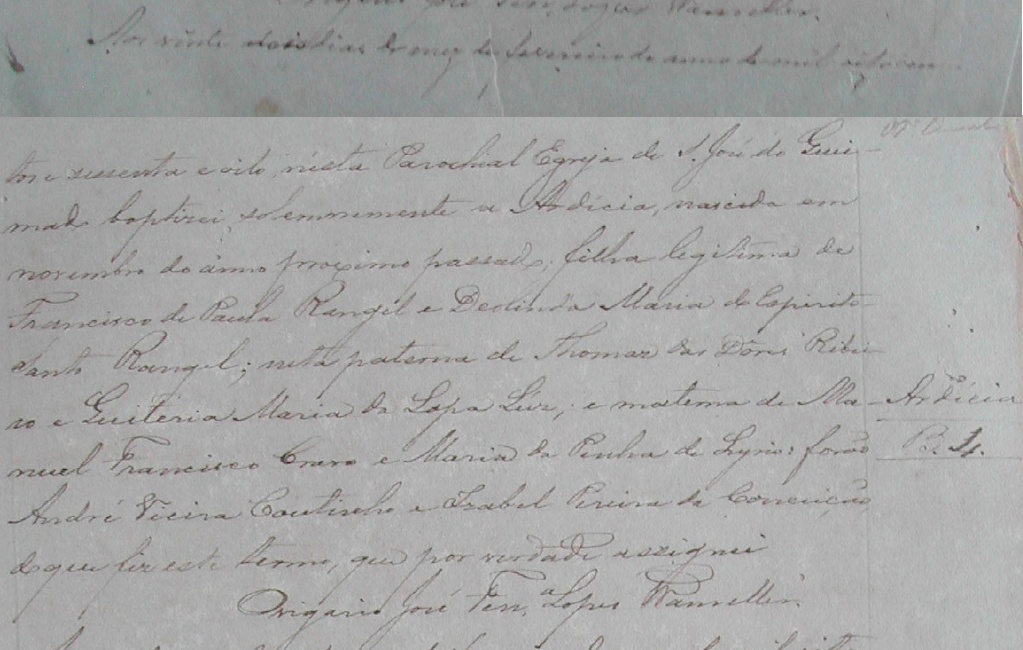 Vigario José Fern. Lopes Wanzeller.
Aos vinte dois dias do mez de fevereiro do anno de mil oitocen-
tos e sessenta e oito, nesta Parochial Egreja de S. José do Quei-
mado baptizei solemnemente a Ardicia, nascida em
novembro do anno proximo passado, filha legitima de
Francisco de Paula Rangel e Deolinda Maria do Espirito-
Santo Rangel; neta paterna de Thomaz das Dores Ribei-
ro e Quiteria Maria da Lapa Luz, e materna de Ma-
noel Francisco e Maria da Penha de Lyrio: forão
André Vieira Coutinho e Izabel Pereira da Conceição,
do que fiz este termo, que por verdade assignei
O vigario José Fern.ª Lopes Wanzeller.
Ardicia
B. 1.